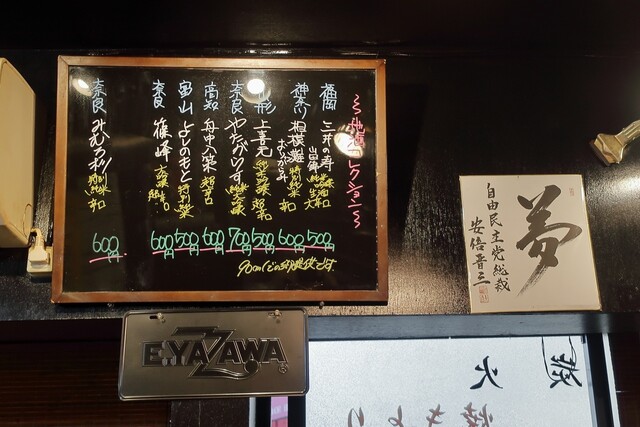 ～地酒コレクション～
福岡 三井の寿 500円
神奈川 相模灘 特別純米 辛口 600円
山形 上喜元 純米吟醸 超辛 500円
奈良 やたがらす 純米大吟醸 700円
高知 舟中八策 超辛口 600円
富山 よしのもと 特別純米 500円
奈良 篠峰 600円
奈良 みむろ杉 特別純米 辛口 600円
90ccでの提供です
E.YAZAWA
夢
自由民主党総裁
安倍晋三
火
焼きとり